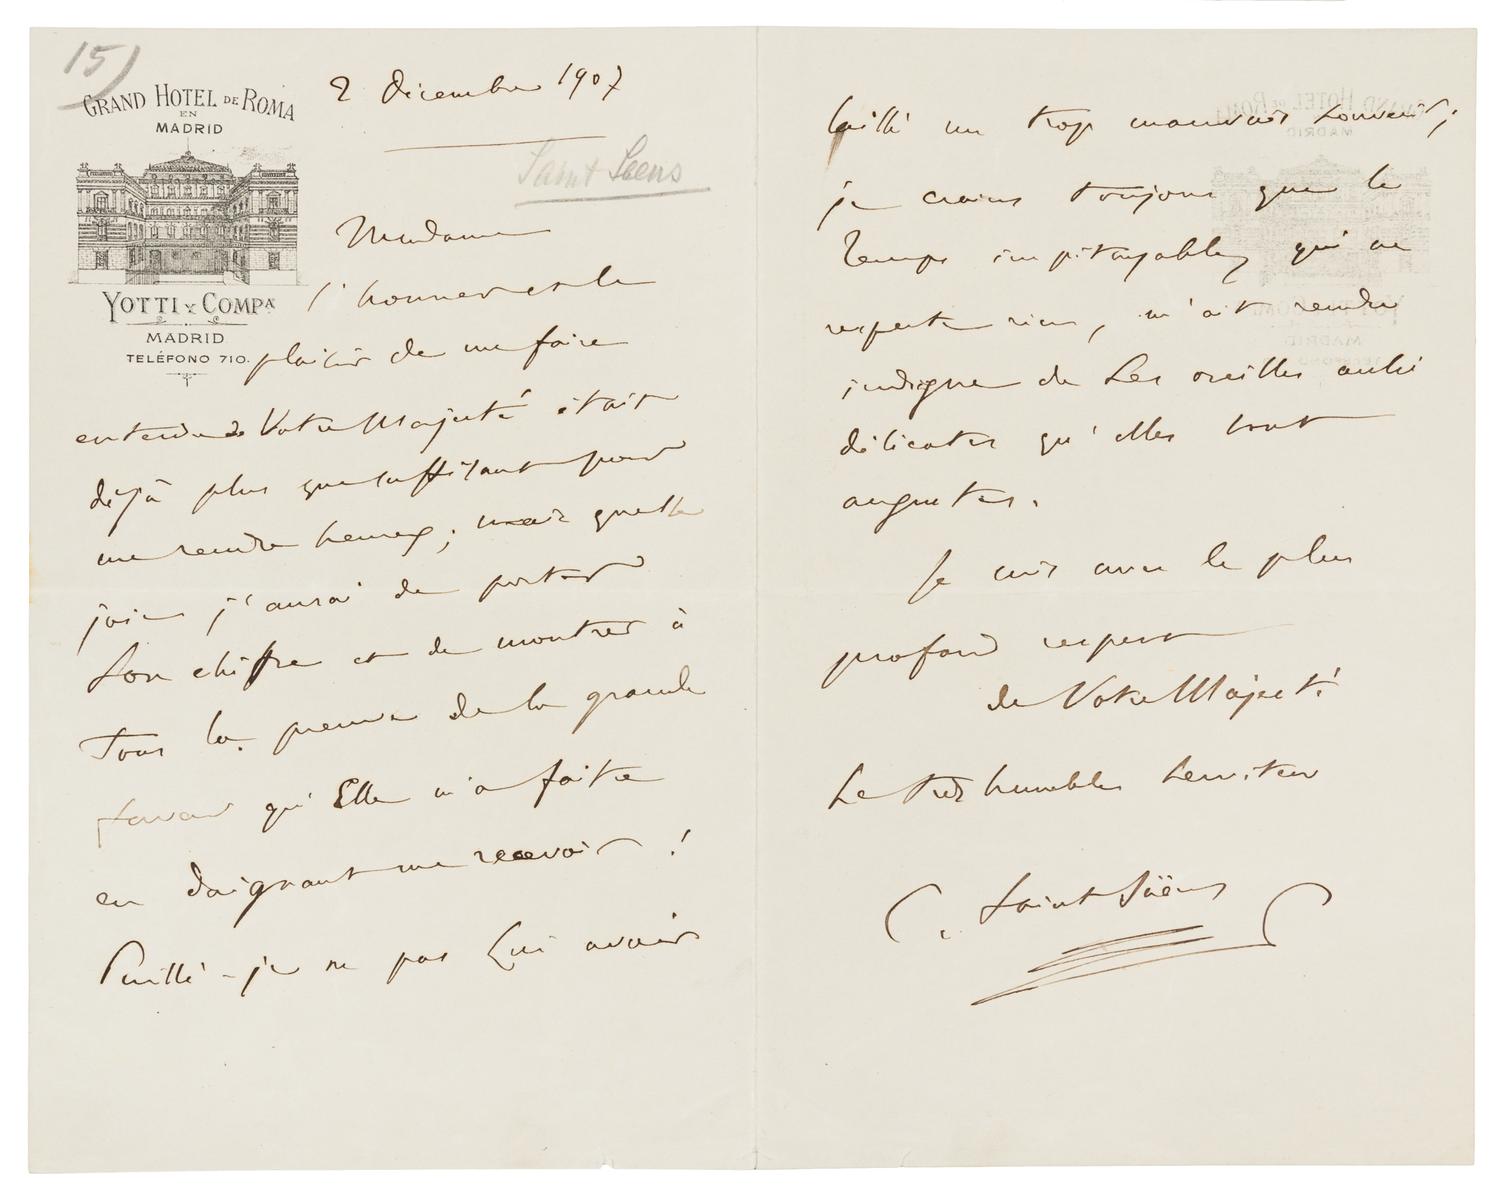 15)
GRAND HOTEL DE ROMA
EN
MADRID
YOTTI Y COMPA
MADRID
TELÉFONO 710.
2 décembre 1907
Saint Saens
Madame
l'honneur et le
plaisir de me faire
entendre de Votre Majesté était
déjà plus que suffisant pour
me rendre heureux ; mais quelle
joie j'aurai de porter
Son chiffre et de montrer à
Tous la preuve de la grande
faveur qu'Elle m'a faite
en daignant me recevoir !
Puissé-je ne pas Lui avoir
laissé un trop mauvais souvenir ;
je crains toujours que le
Temps impitoyable, qui ne
respecte rien, m'ait rendu
indigne de Ses oreilles aussi
délicates qu'elles sont
augustes.
Je suis avec le plus
profond respect
de Votre Majesté
Le très humble Serviteur
C. Saint-Saëns